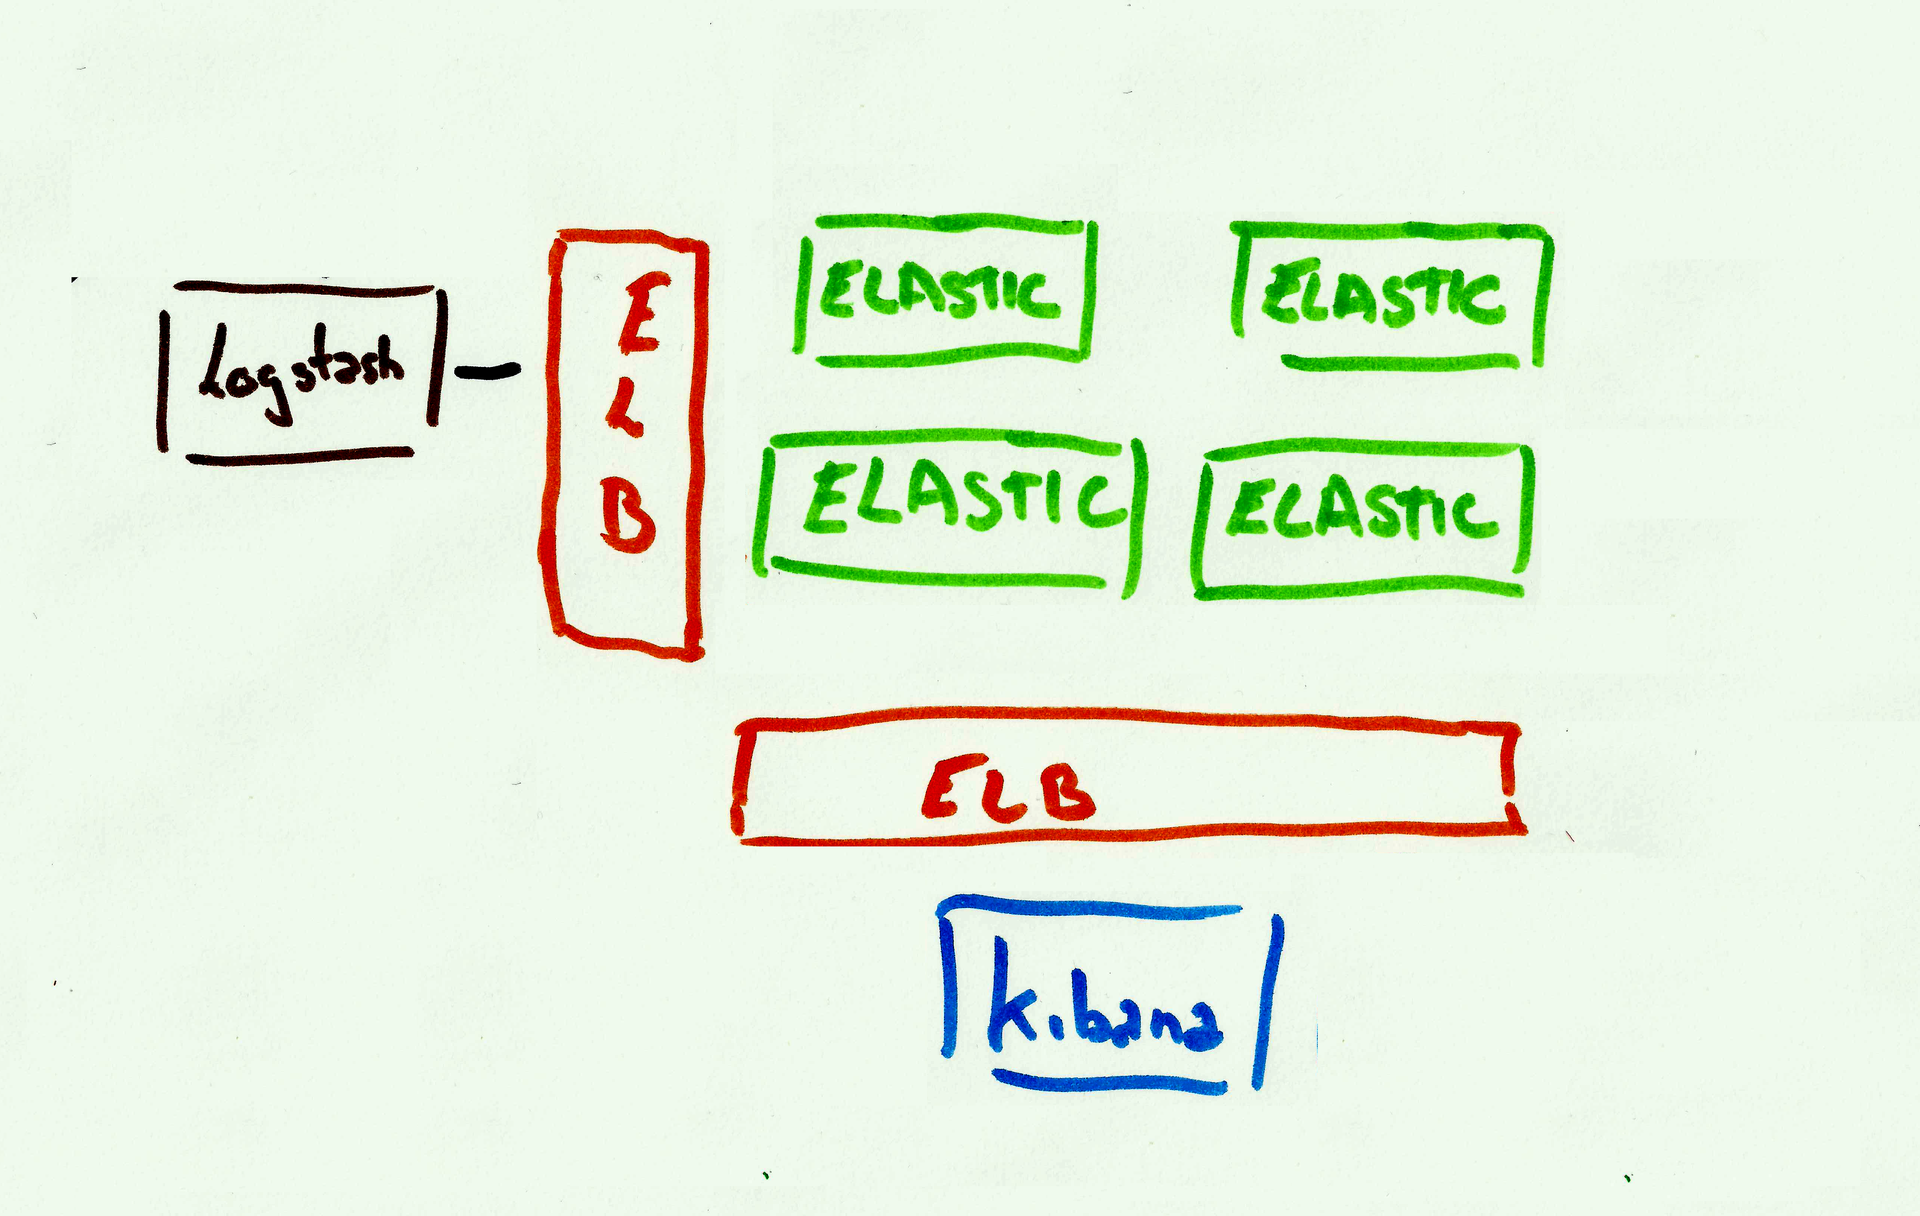 Logstash
E
L
B
ELASTIC
ELASTIC
ELASTIC
ELASTIC
ELB
kibana